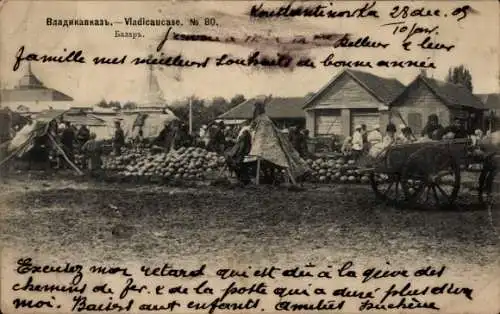 Владикавказъ. — Vladicaucase. № 80.
Базаръ.
Konstantinovka 28 dec. 05
10/1
J'envoie à Monsieur Keller et leur
famille mes meilleurs souhaits de bonne année
Excusez mon retard qui est dû à la grève des
chemins de fer & de la poste qui a duré plus d'un
moi. Baisers aux enfants. Amitiés Duchêne.